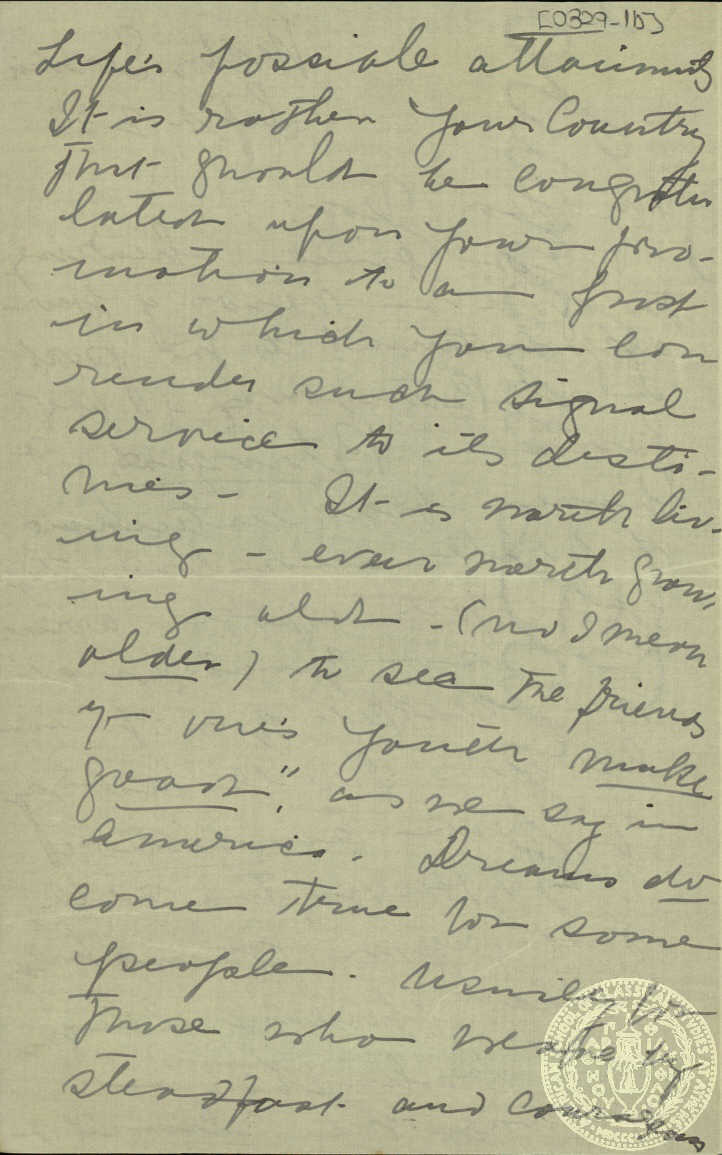 [0329-15]
Life's possible attainments
It is rather your Country
that should be congratu
lated upon your pro-
motion to a post
in which you can
render such signal
service to its desti-
nies - It is worth liv-
ing - even worth grow-
ing old - (no I mean
older) to see the friends
of one's youth make
good", as we say in
America. Dreams do
come true for some
people. Usually for
those who by
steadfast and courageous